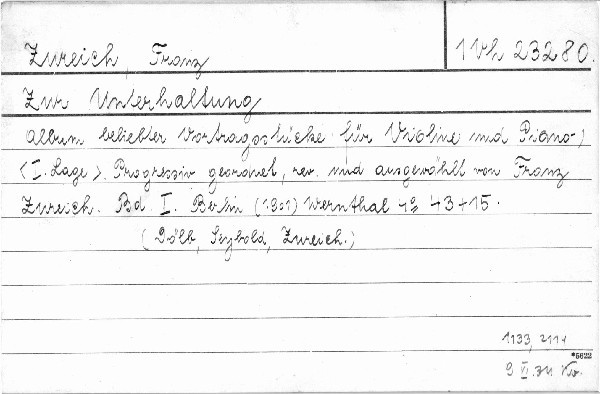 Zureich, Franz 1 Vh 23280.
Zur Unterhaltung
Album beliebter Vortragsstücke für Violine und Piano
(I. Lage). Progressiv geordnet, rev. und ausgewählt von Franz
Zureich. Bd I. Berlin (1901) Wernthal 4° 43+15.
(Dölb, Seybold, Zureich.)
1133, 2111
*5622
9 VI.34 Kr.